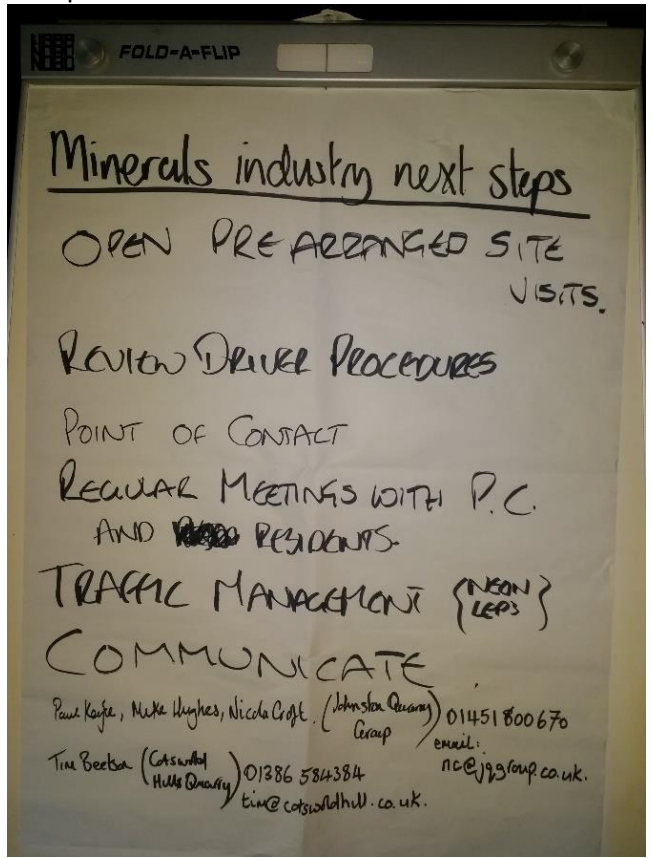 FOLD-A-FLIP
Minerals industry next steps
OPEN PRE ARRANGED SITE
VISITS.
REVIEW DRIVER PROCEDURES
POINT OF CONTACT
REGULAR MEETINGS WITH P.C.
AND RESIDENTS.
TRAFFIC MANAGEMENT {NEON
LEPS}
COMMUNICATE
Mike Hughes, Nicola Croft. (Johnston Quarry
Group) 01451 800670
email:
nc@jqgroup.co.uk.
Tim (Cotswold
Hills Quarry) 01386 584384
tim@cotswoldhill.co.uk.